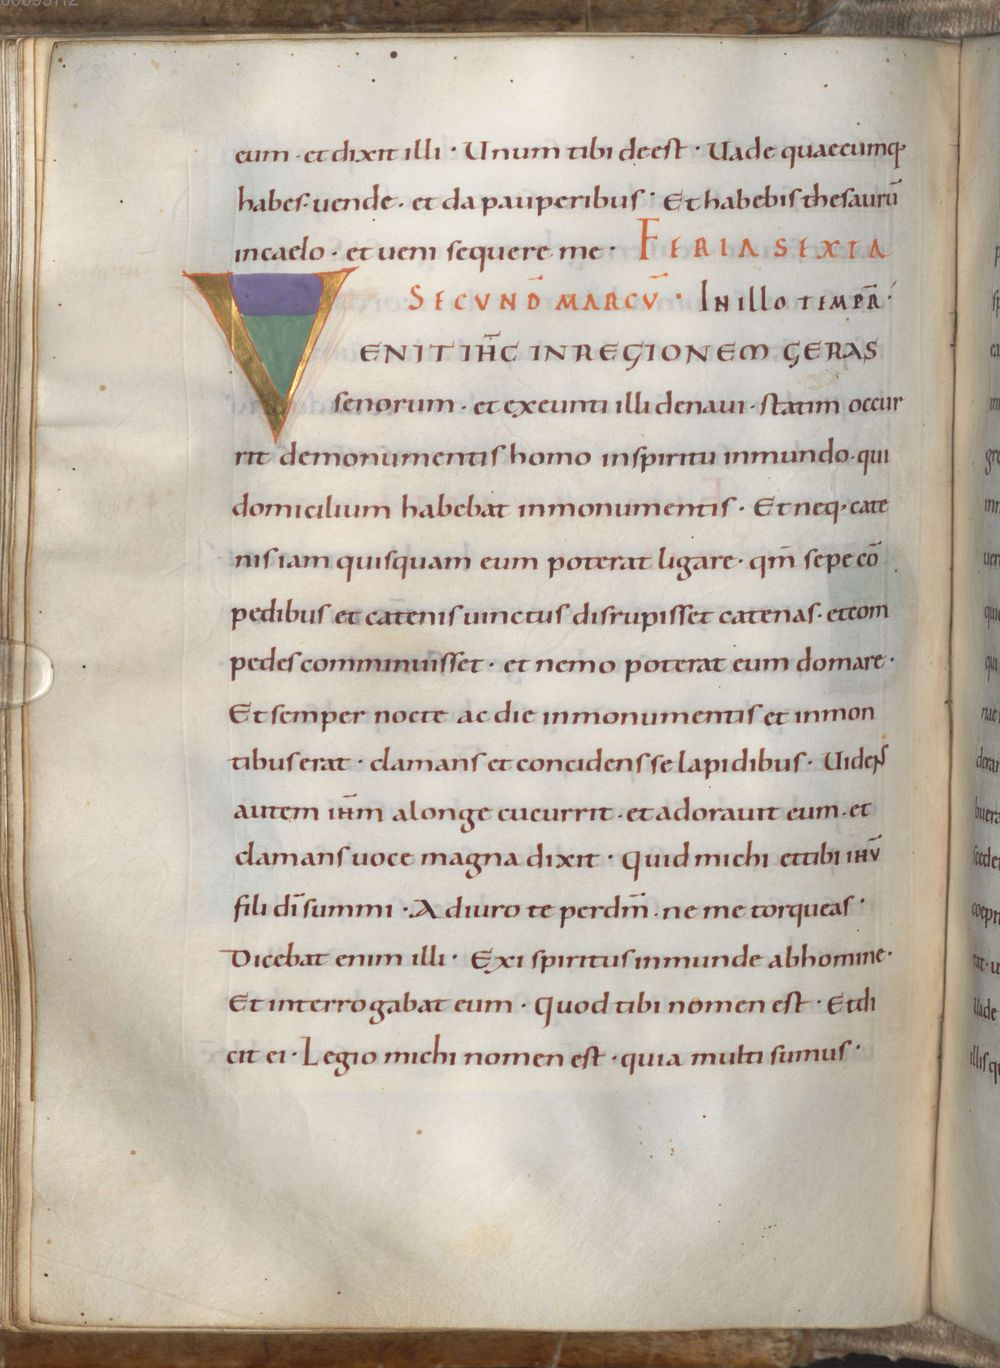 eum · et dixit illi · Unum tibi deest · Uade quaecumq·
habes · uende · et da pauperibus · Et habebis thesaurū
in caelo · et ueni sequere me · FERIA SEXTA
SECUND̄ MARCŪ · IN ILLO TEMPR̄ ·
VENIT IH̄C IN REGIONEM GERAS
senorum · et exeunti illi de naui · statim occur
rit de monumentis homo in spiritu inmundo · qui
domicilium habebat in monumentis · Et neq· cate
nis iam quisquam eum poterat ligare · qm̄ sepe eō
pedibus et catenis uinctus disrupisset catenas · et com
pedes comminuisset · et nemo poterat eum domare ·
Et semper nocte ac die in monumentis et in mon
tibus erat · clamans et concidens se lapidibus · Uidens
autem ihm̄ a longe cucurrit · et adorauit eum · et
clamans uoce magna dixit · Quid michi et tibi ihū
fili dī summi · Adiuro te per dm̄ · ne me torqueas ·
Dicebat enim illi · Exi spiritus inmunde ab homine ·
Et interrogabat eum · Quod tibi nomen est · Et di
cit ei · Legio michi nomen est · quia multi sumus ·